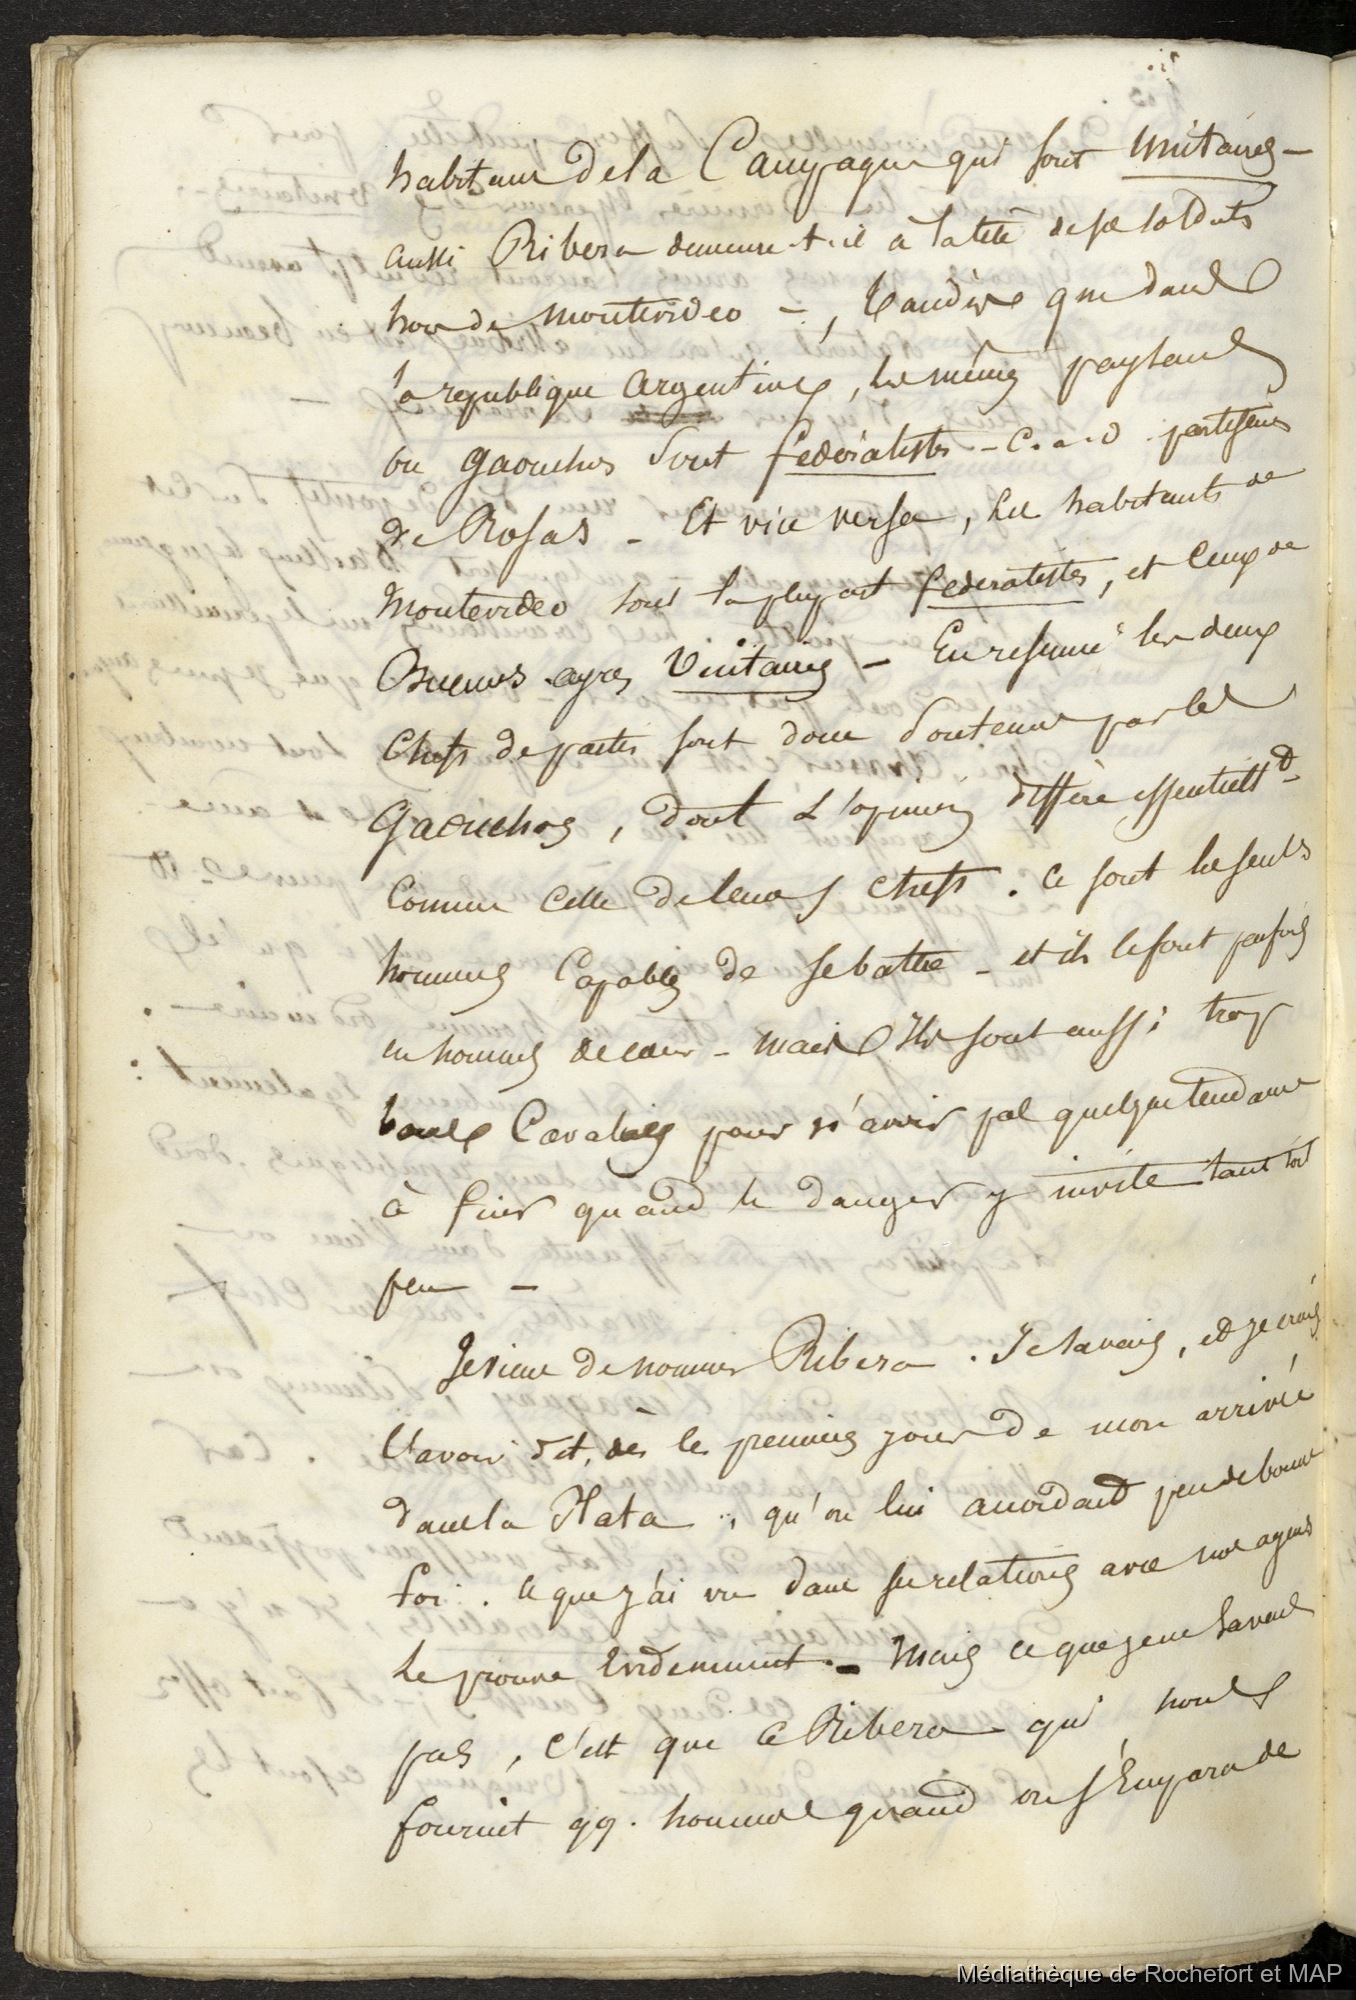 habitans de la Campagne qui sont unitaires -
aussi Ribera demeure-t-il à la tête de ses soldats
hors de montevideo - , tandis que dans
la republique argentine, les mêmes paysans
ou gaouchos sont fedéralistes - c. a. d. partisans
de Rosas - Et vice versa, les habitants de
Montevideo sont la plupart federalistes, et ceux de
Buenos-ayres Unitaires - En resumé les deux
Chefs de partis sont donc soutenus par les
Gaouchos, dont l'opinion diffère essentiellt
comme celle de leurs chefs. Ce sont les seuls
hommes capables de se battre - et ils le font parfois
en hommes de cœur - mais Ils sont aussi trop
bons Cavaliers pour n'avoir pas quelque tendance
à fuir quand le danger y invite tant soit
peu -
Je viens de nommer Ribera. Je savais, et je crois
l'avoir dit, dès les premiers jours de mon arrivée
dans la Plata, qu'on lui accordait peu de bonne
foi. Ce que j'ai vu dans ses relations avec nos agens
le prouve Evidemment. - Mais ce que je ne savais
pas, c'est que ce Ribera qui nous
fournit qq. hommes quand on s'Empara de
Médiathèque de Rochefort et MAP